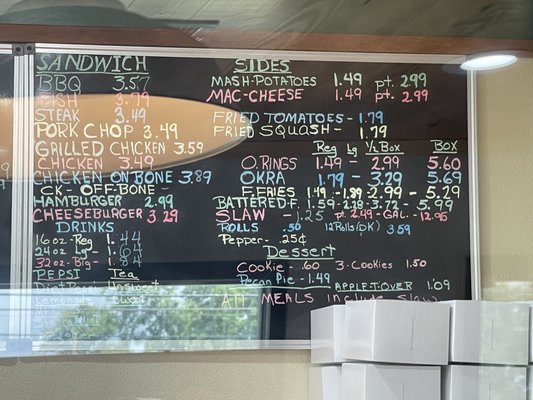 SANDWICH
BBQ 3.57
FISH 3.79
STEAK 3.49
PORK CHOP 3.49
GRILLED CHICKEN 3.59
CHICKEN 3.49
CHICKEN ON BONE 3.89
CK-OFF-BONE -
HAMBURGER 2.99
CHEESEBURGER 3.29
DRINKS
16 oz - Reg 1.44
24 oz Lg - 1.64
32 oz - Big - 1.84
PEPSI Tea
Diet Pepsi Unsweet
Lemonade Sweet
SIDES
MASH-POTATOES 1.49 pt. 2.99
MAC-CHEESE 1.49 pt. 2.99
FRIED TOMATOES - 1.79
FRIED SQUASH - 1.79
Reg Lg 1/2 Box BOX
O.RINGS 1.49 - 2.99 5.60
OKRA 1.79 - 3.29 5.69
F.FRIES 1.49 - 1.89 - 2.99 - 5.29
BATTERED-F. 1.59 - 2.18 - 3.72 - 5.99
SLAW - 1.25 pt 2.49 - GAL. - 12.95
ROLLS .50 12 Rolls (pk) 3.59
Pepper - .25¢
Dessert
Cookie - .60 3-Cookies 1.50
Pecan Pie - 1.49 APPLE T-OVER 1.09
All MEALS include Slaw